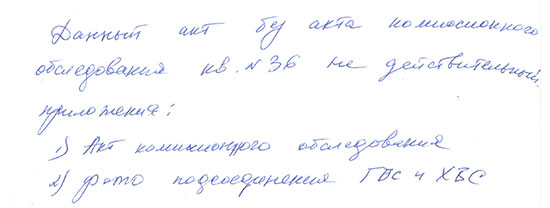 Данный акт без акта комиссионного
обследования кв. №36 не действительный.
приложения:
1) Акт комиссионного обследования
2) фото подсоединения ГВС и ХВС